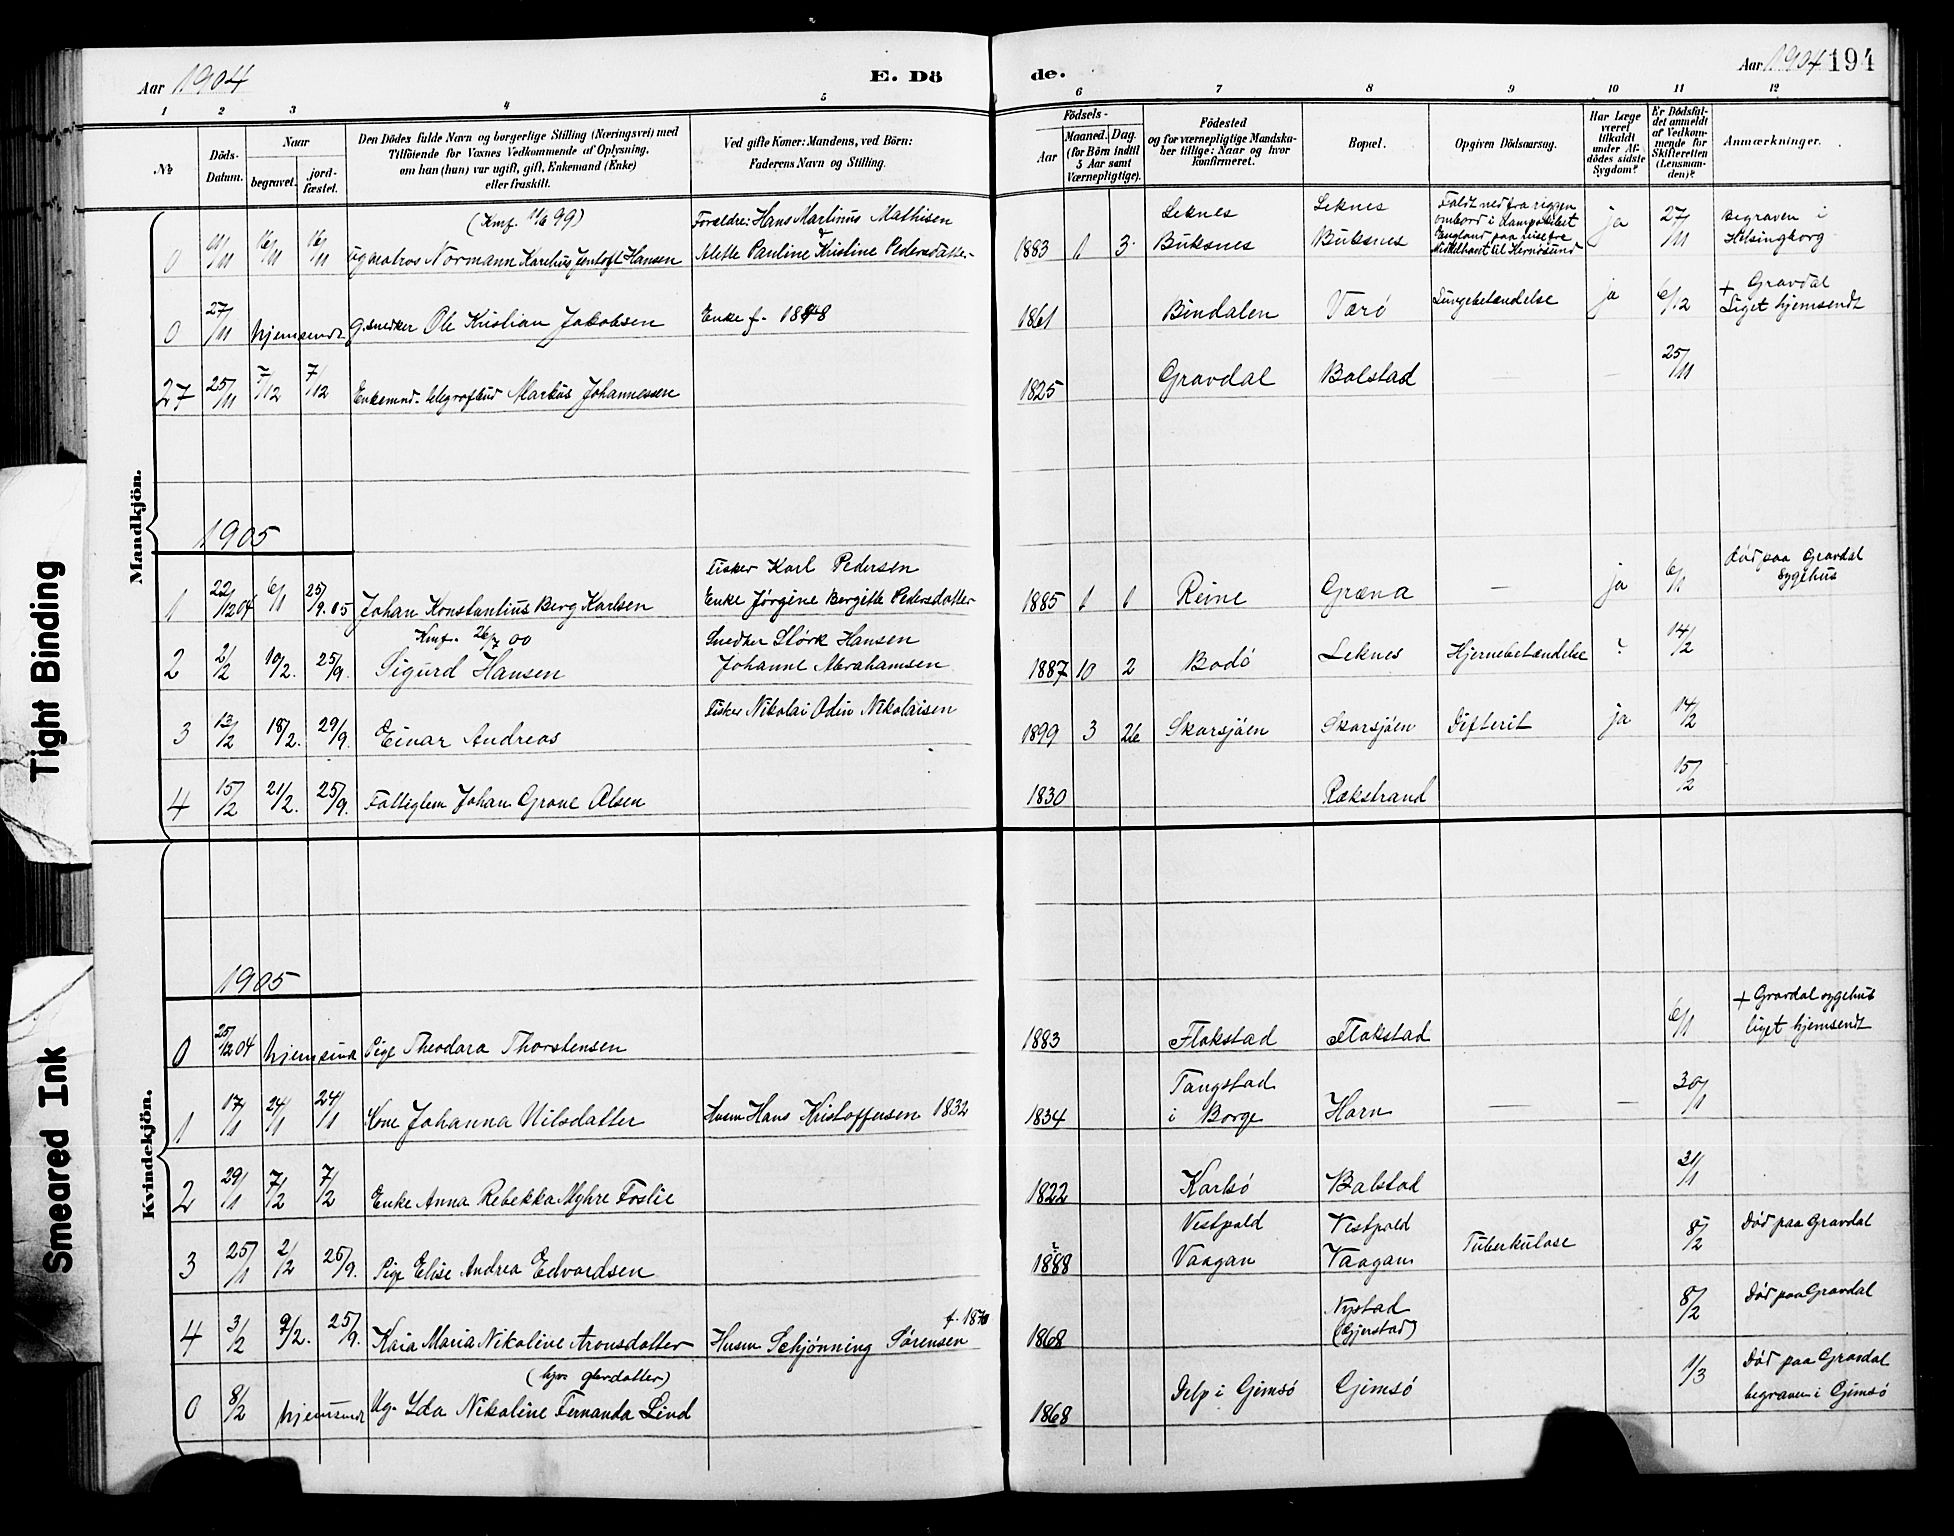 Aar 1904
E. Dö
de.
Aar 1904 194
1 2 3 4 5 6 7 8 9 10 11 12
№
Döds-Datum.
Naar
begravet.
jord-fæstet.
Den Dödes fulde Navn og borgerlige Stilling (Næringsvei) med
Tilföiende for Voxnes Vedkommende af Oplysning,
om han (hun) var ugift, gift, Enkemand (Enke)
eller fraskilt.
Ved gifte Koner: Mandens, ved Börn:
Faderens Navn og Stilling.
Födsels-
Aar
Maaned. Dag.
(for Börn indtil
5 Aar samt
Værnepligtige).
Födested
og for værnepligtige Mandska-
ber tillige: Naar og hvor
konfirmeret.
Bopæl.
Opgiven Dödsaarsag.
Har Læge
været
tilkaldt
under Af-
dödes sidste
Sygdom?
Er Dödsfal-
det anmeldt
af Vedkom-
mende for
Skifteretten
(Lensman-
den)?
Anmærkninger.
Mandkjön.
(Kmf. 11/6 99) Forældre: Hans Martinus Mathisen Leknes Leknes Faldt ned fra riggen
0 11/11 16/11 16/11 Normann Karelius Jentoft Hansen Alette Pauline Kristine Pedersdatter 1883 1 3 Buksnes Buksnes ombord i ja 27/11 Begraven i
Helsingborg
0 27/11 hjemsendt G. snedker Ole Kristian Jakobsen Enke f. 1848 1861 Bindalen Værö Lungebetændelse ja 6/12 + Gravdal
Liget hjemsendt
27 25/11 7/12 7/12 Enkemnd. telegrafbud Markus Johannessen 1825 Gravdal Balstad — — 25/11
1905
Fisker Karl Pedersen Död paa Gravdal
1 22/12 04 6/1 25/9.05 Johan Konstantius Berg Karlsen Enke Jørgine Bergitte Pedersdatter 1885 1 1 Reine Græna — ja 6/1 Sygehus
Kmf. 26/7 00 Snedker Størk Hansen
2 2/2 10/2. 25/9. Sigurd Hansen Johanne Abrahamsen 1887 10 2 Bodö Leknes Hjernebetændelse ? 14/2
Fisker Nikolai Odin Nikolaisen
3 13/2 18/2. 29/9. Einar Andreas 1899 3 26 Skarsjöen Skarsjöen Difterit ja 14/2
4 15/2 21/2. 25/9. Fattiglem Johan Grone Olsen 1830 Rækstrand 15/2
Kvindekjön.
1905
0 25/12 04 hjemsend Pige Theodora Thorstensen 1883 Flakstad Flakstad 6/1 + Gravdal sygehus
liget hjemsendt
Tangstad
1 17/1 24/1 24/1 Kone Johanna Nilsdatter Husm Hans Kristoffersen 1832 1834 i Borge Horn — — 30/1
2 29/1 7/2 7/2 Enke Anna Rebekka Myhre Foslie 1822 Karlsö Balstad 31/1
Vestpold Vestpold
3 25/1 2/2 25/9. Pige Elise Andrea Edvardsen 1888 Vaagan Vaagan Tuberkulose 8/2 Död paa Gravdal
f. 1870 Nystad
4 3/2 9/2. 25/9. Kaia Maria Nikoline Aronsdatter Husm Schjønning Sörensen 1868 (Gjerstad) 8/2 Död paa Gravdal
0 8/2 hjemsendt Ug. Ida Nikoline Fernanda Lind 1868 Delp i Gimsö Gimsö 1/3 Död paa Gravdal
begraven i Gimsö
Tight Binding
Smeared Ink